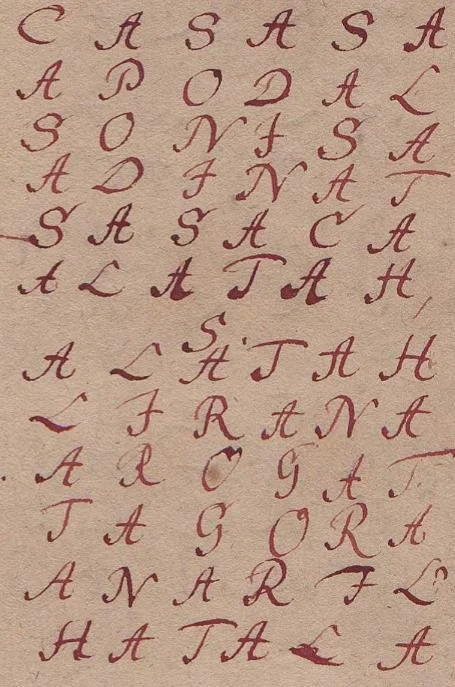 C A S A S A
A P O D A L
S O N I S A
A D I N A T
S A S A C A
A L A T A H,
S.
A L A T A H
L I R A N A
A R O G A T
T A G O R A
A N A R I L
H A T A L A